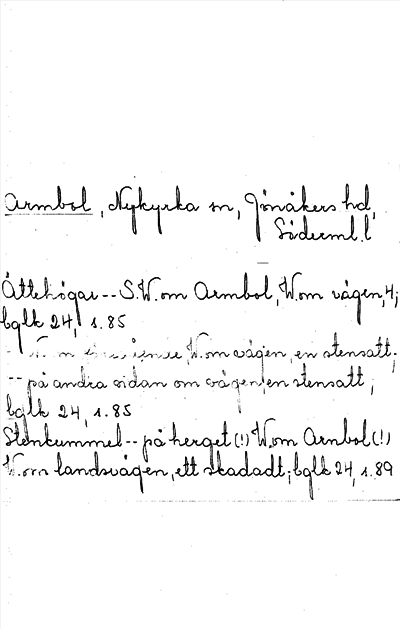 Armbol, Nykyrka sn, Jönåkers hd,
Söderml. l
Ättehögar -- S.W. om Armbol, W. om vägen, 4;
bglk 24, s. 85
W. om vägen, en stensatt;
-- på andra sidan om vägen, en stensatt,
bglk 24, s. 85
Stenkummel -- på berget (!) W. om Armbol (!)
W. om landsvägen, ett skadadt; bglk 24, s. 89